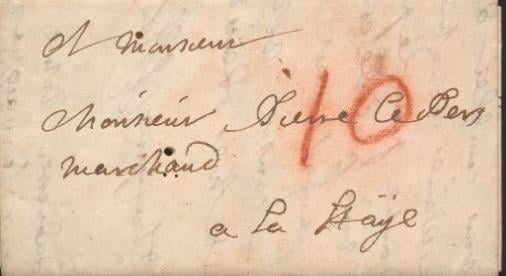 A Monsieur
Monsieur Pierre
marchand
a La Haÿe
10